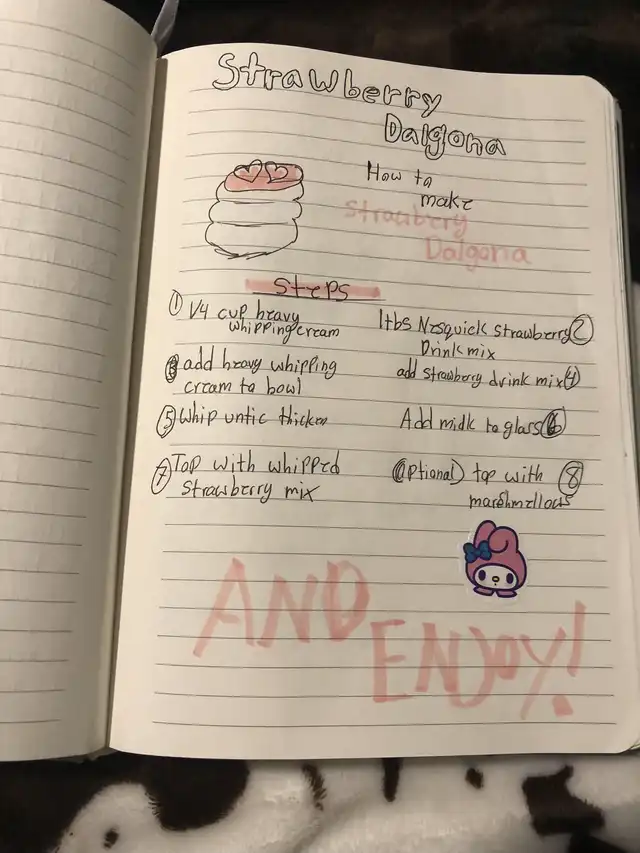 Strawberry
Dalgona
How to
make
Strawbery
Dalgona
Steps
① 1/4 cup heavy
whipping cream
1tbs Nesquick strawberry ②
Drink mix
③ add heavy whipping
cream to bowl
add strawberry drink mix ④
⑤ Whip untic thicken
Add midk to glass ⑥
⑦ Top with whipped
strawberry mix
(optional) top with ⑧
marshmellows
AND
ENJOY!